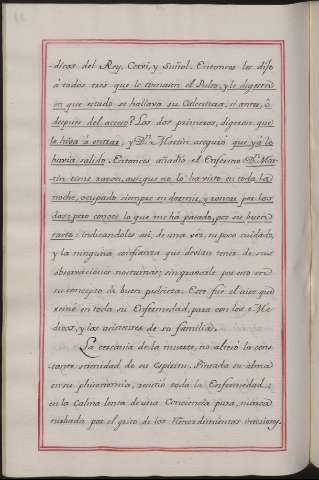 dicos del Rey, Corvi, y Suñol. Entonces les dijo
á todos tres que le tomasen el Pulso, y le digesen
en que estado se hallava su Calentura, si antes, ó
despues del acceso? Los dos primeros, digeron que
le hiva á entrar, y Dn. Martin aseguró que yá lo
havia salido. Entonces añadió el Enfermo Dn. Mar-
tin tiene razon, aunque no lo ha visto en toda la
noche, ocupado siempre en dormir, y roncar por los
dos; pero conoce lo que me há pasado, por su buen
tacto: indicandoles asi, de una véz, su poco cuidado,
y la ninguna confianza que devian tener de sus
observaciones nocturnas; sin quitarle por eso en
su concepto de buen
reinó en toda su Enfermedad, para con los Me-
dicos, y los asistentes de su familia.
La cercania de la muerte, no alteró la cons-
tante serenidad de su Espiritu. Pintada su alma
en su phisonomía, resistió toda la Enfermedad;
en la Calma lenta de una Conciencia pura, nunca
turbada por el grito de los Remordimientos